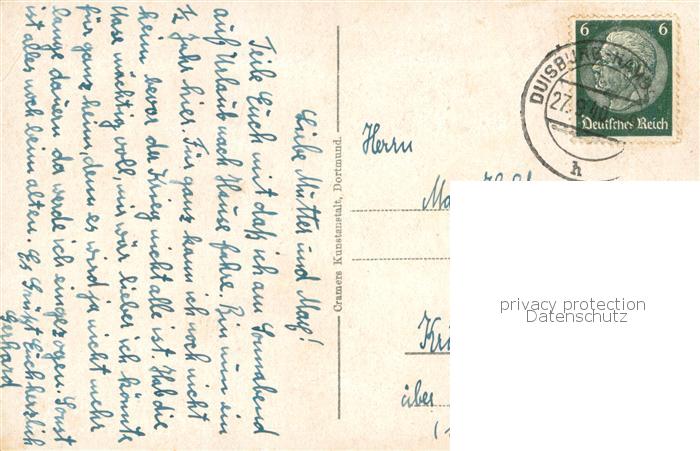 Liebe Mutter und Max!
Teile Euch mit daß ich am Sonnabend
auf Urlaub nach Hause fahre. Bin nun ein
½ Jahr hier. Für ganz kann ich noch nicht
heim bevor der Krieg nicht alle ist. Hab die
Nase mächtig voll, mir wär lieber ich könnte
für ganz heim, denn es wird ja nicht mehr
lange dauern da werde ich eingezogen. Sonst
ist alles noch beim alten. Es Grüßt Euch herzlich
Gerhard
Cramers Kunstanstalt, Dortmund.
6 6
Deutsches Reich
DUISBURG
27.
h
Herrn
über
privacy protection
Datenschutz